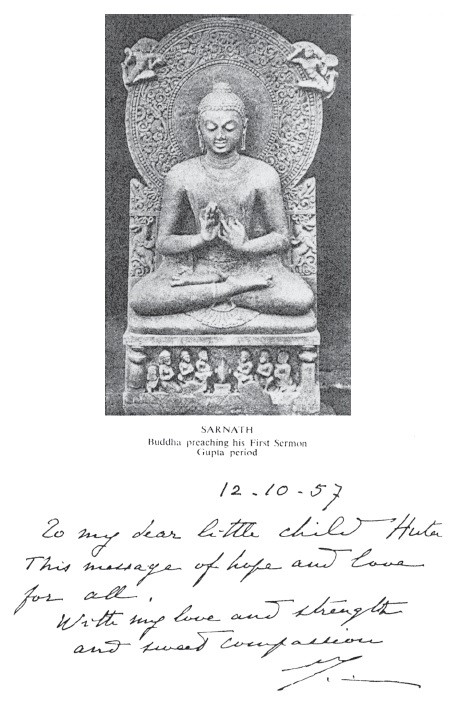 SARNATH
Buddha preaching his First Sermon
Gupta period
12-10-57
To my dear little child Huta
This message of hope and love
for all.
With my love and strength
and sweet compassion